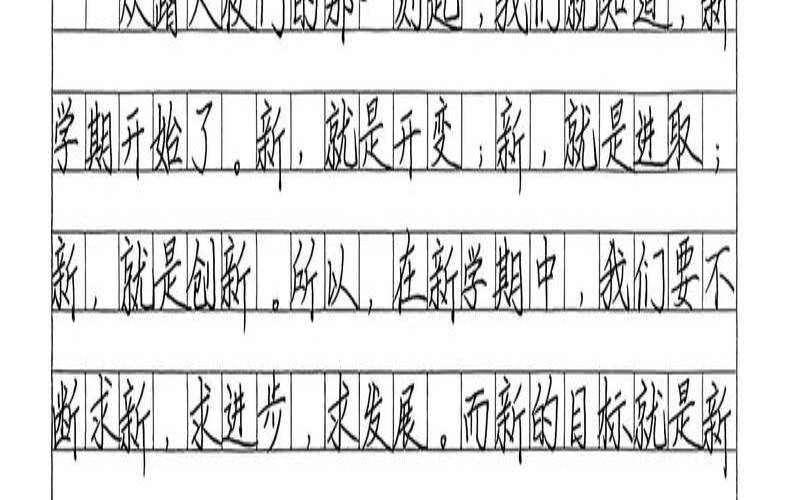 从踏入校门的那一刻起，我们就知道，新
学期开始了。新，就是开变；新，就是进取；
新，就是创新。所以，在新学期中，我们要不
断求新，求进步，求发展。而新的目标就是新